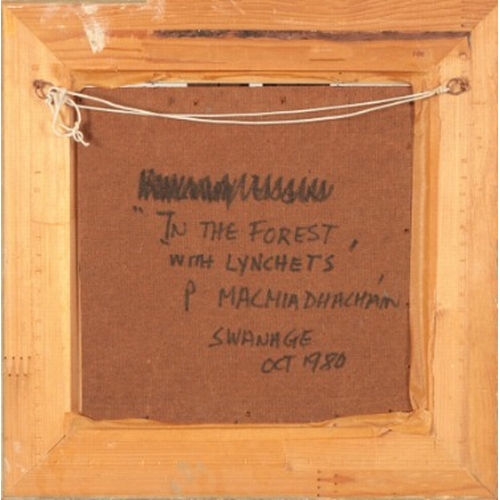 "IN THE FOREST,
WITH LYNCHETS,
P MACMIADHACHÁIN
SWANAGE
OCT 1980